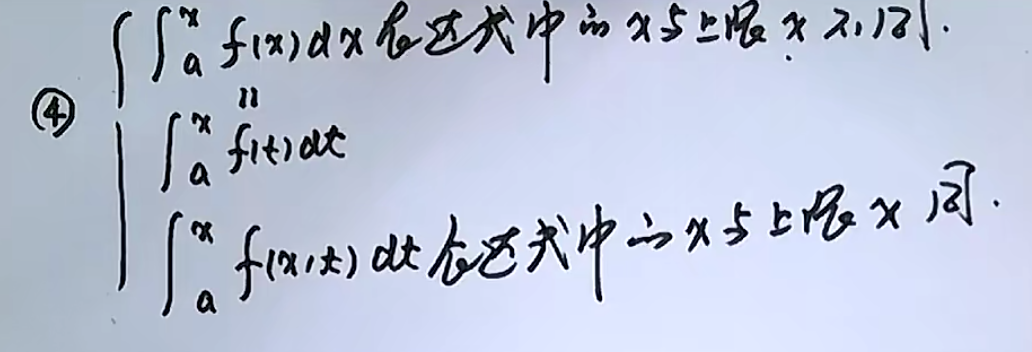 ∫ₐˣ f(x)dx 表达式中的x与上限x不同.
④
∥
∫ₐˣ f(t)dt
∫ₐˣ f(x,t)dt 表达式中的x与上限x同.